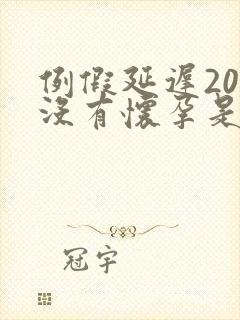 例假延迟20
没有怀孕是
冠宇